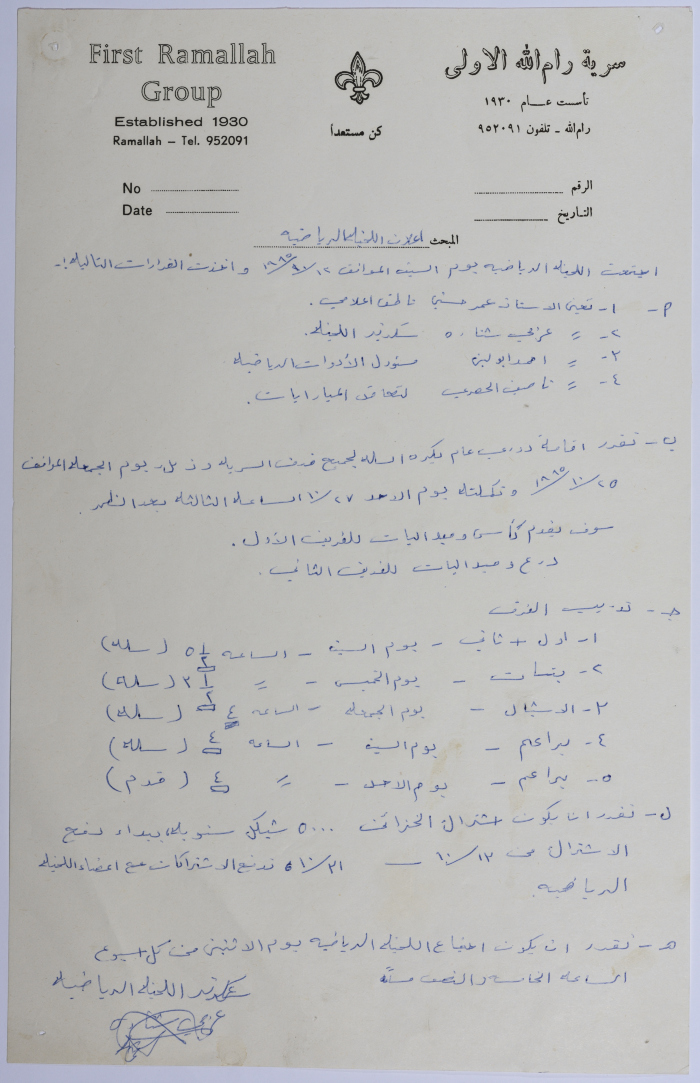 First Ramallah
Group
Established 1930
Ramallah – Tel. 952091
كن مستعداً
سرية رام الله الاولى
تأست عــام ١٩٣٠
رام الله ـ تلفون ٩٥٢٠٩١
No
Date
الرقم
التاريخ
المبحث اعلان اللجنه الرياضيه
اجتمعت اللجنه الرياضيه يوم السبت الموافق ١٢/١٠/١٩٨٥ واتخذت القرارات التاليه :ـ
٢ـ ١ـ تعين الاستاذ عمر حسني ناطق اعلامي .
٢ـ " عزمي شناره سكرتير اللجنه .
٣ـ " احمد ابو لبن مسؤول الأدوات الرياضيه
٤ـ " ناصف الحصري المباريات .
ب ـ تقرر اقامة دوري عام بكرة السله لجميع فرق السريه وذلك يوم الجمعه الموافق
٢٥/١٠/١٩٨٥ وتكملته يوم الاحد ٢٧/١٠ الساعه الثالثه بعد الظهر
سوف يقدم كأس وميداليات للفريق الأول .
درع وميداليات للفريق الثاني .
جـ ـ تدريب الفرق
١ـ اول + ثاني ـ يوم السبت ـ الساعه ٥ ١/٢ (سله)
٢ـ بنات ـ يوم الخميس ـ " ٣ ١/٢ (سله)
٣ـ الاشبال ـ يوم الجمعه ـ الساعه ٤ (سله)
٤ـ براعم ـ يوم السبت ـ الساعه ٤ (سله)
٥ـ براعم ـ يوم الأحد ـ " ٤ (قدم)
تقرر ان يكون اشتراك الخزائن ٥٠٠٠ شيكل سنويا يبداء دفع
الاشتراك من ١٣/١٠ ـــ ٣١/١٠ تدفع الاشتراكات مع اعضاء اللجنه
الرياضيه
هـ ـ تقرر ان يكون اجتماع اللجنه الرياضيه يوم الاثنين من كل اسبوع
الساعه الخامسه والنصف مساً
سكرتير اللجنه الرياضيه
عزمي شناره